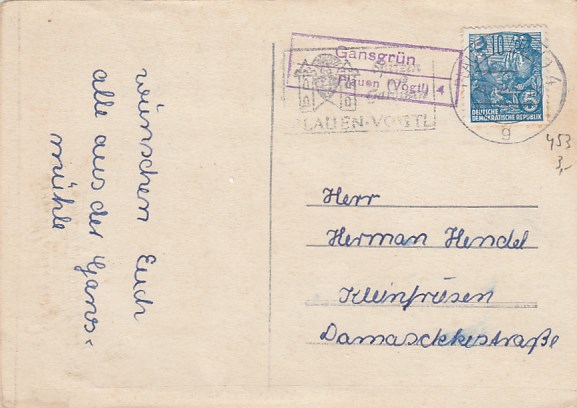 wünschen Euch
alle aus der Gans-
mühle
Gansgrün
Plauen (Vogtl) 4
PLAUEN-VOGTL
g
10
5
DEUTSCHE
DEMOKRATISCHE REPUBLIK
453
3,-
Herr
Herman Hendel
Kleinfriesen
Damasckkestraße